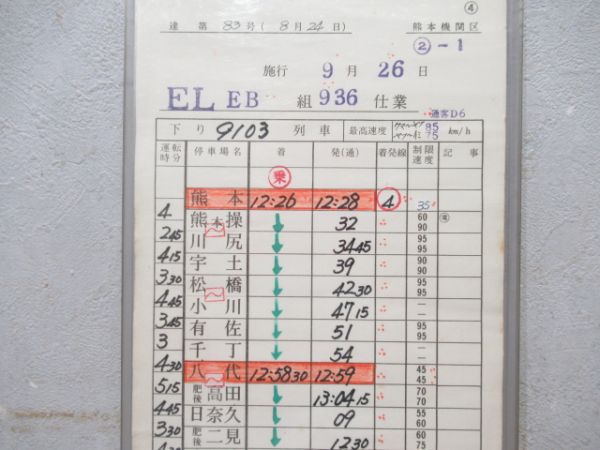 ④
達 第 83 号 ( 8 月 24 日 )
熊本機関区
②-1
施行 9 月 26 日
EL EB 組 936 仕業
通客D6
下り 9103 列車 最高速度 95 75 km/h
運転時分 停車場名 着 発(通) 着発線 制限速度 記事
乗
熊本 12:26 12:28 4 35
4
熊本操 ↓ 32 60 90
2 45
川尻 ↓ 34 45 95 95
4 15
宇土 ↓ 39 90 90
3 30
松橋 ↓ 42 30 95 95
4 45
小川 ↓ 47 15 — —
3 45
有佐 ↓ 51 95 95
3
千丁 ↓ 54 — —
4 30
八代 12:58 30 12:59 45 45
5 15
肥後高田 ↓ 13:04 15 70 70
4 45
日奈久 ↓ 09 55 60
3 30
肥後二見 ↓ 12 30 60 75